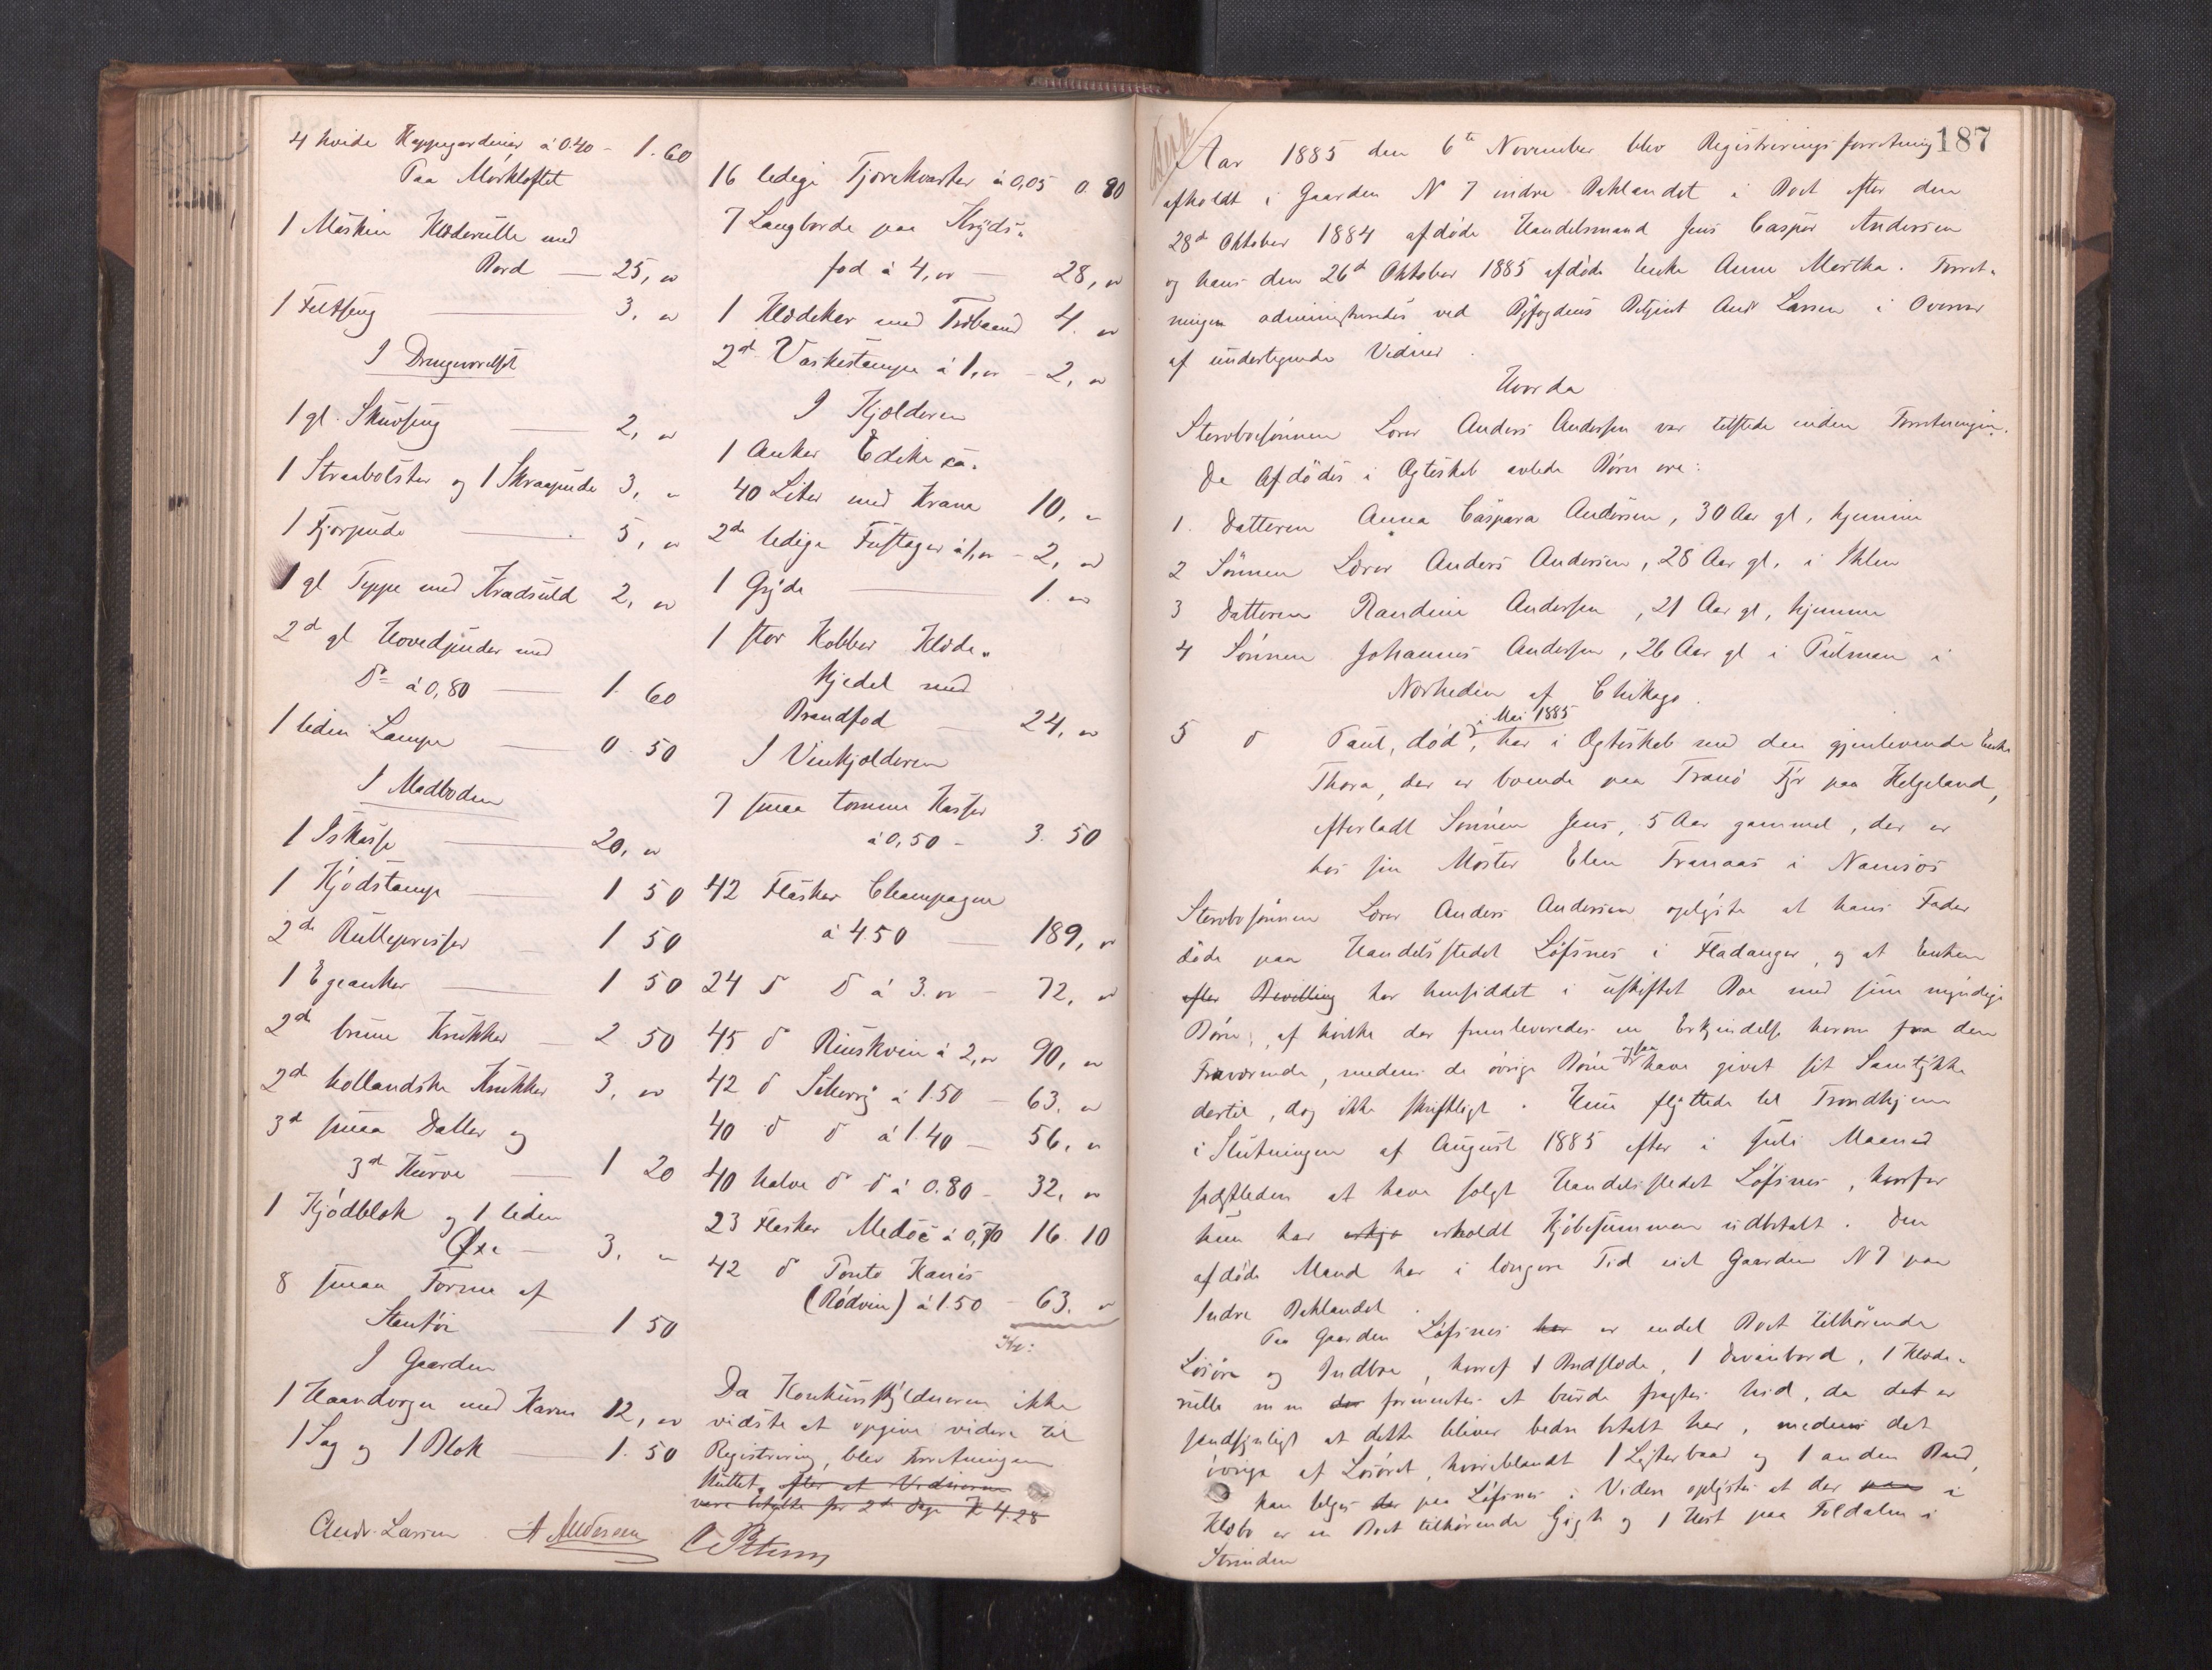 4 hvide Kappegardiner á 0.40 - 1.60
Paa Mörkloftet
1 Maskin Klæderulle med
Bord — 25, "
1 Feltseng — 3, "
I Drengeværelset
1 gl. Skuvseng — 2, "
1 Straabolster og 1 Skraapude 3, "
1 Fjærpude — 5, "
1 gl Teppe med Kradsuld 2, "
2de gl Hovedpuder med
do á 0,80 — 1. 60
1 liden Lampe — 0. 50
I Madboden
1 Iskasse — 20, "
1 Kjödstampe — 1 50
2de Rullepresser — 1 50
1 Egeanker — 1 50
2de brune Krukker — 2 50
2de hollandske Krukker 3, "
3de smaa Daller og
3de Kurve — 1 20
1 Kjödblok og 1 liden
Öxe — 3, "
8 smaa Forme af
Stentöi — 1 50
I Gaarden
1 Haandvogn med Karm 12, "
1 Sag og 1 Blok — 1. 50
16 ledige Tjærekvarter á 0,05 0. 80
7 Langborde paa Kryds-
fod á 4, " — 28, "
1 Klædekar med Træbaand 4. "
2de Vaskestampe á 1, " - 2, "
I Kjælderen
1 Anker Edike ca.
40 Liter med Krane 10, "
2de ledige Fustager á 1, " - 2, "
1 Gryde — 1. "
1 stor Kobber Klæde-
kjedel med
Brandfod — 24, "
I Vinkjælderen
7 smaa tomme Kasser
á 0,50 - 3. 50
42 Flasker Champagne
á 4.50 — 189, "
24 do do á 3. " - 72, "
45 do Rinskvin á 2, " 90, "
42 do Scherry á 1.50 - 63. "
40 do do á 1.40 - 56, "
40 halve do do á 0.80 - 32, "
23 Flasker Medoc á 0,70 16. 10
42 do Ponte Kanis
(Rödvin) á 1.50 - 63. "
Kr:
Da Konkursskyldneren ikke
vidste at opgive videre til
Registrering, blev Forretningen
sluttet, efter at Vidnerne
vare betalte for 2de Dage K 4.28
Andr. Larsen A Andersen C Petersen
187
Aar 1885 den 6te November blev Registreringsforretning
afholdt i Gaarden N 7 indre Baklandet i Boet efter den
28de Oktober 1884 afdöde Handelsmand Jens Caspar Andersen
og hans den 26de Oktober 1885 afdöde Enke Anne Martha. Forret-
ningen administreredes ved Byfogdens Betjent Andr Larsen i Overvær
af undertegnede Vidner.
Hvorda
Stervbosönnen Lærer Anders Andersen var tilstede under Forretningen.
De Afdödes i Ægteskab avlede Börn ere:
1. Datteren Anna Caspara Andersen, 30 Aar gl, hjemme
2 Sönnen Lærer Anders Andersen, 28 Aar gl, i Ihlen
3 Datteren Randine Andersen, 21 Aar gl, hjemme
4 Sönnen Johannes Andersen, 26 Aar gl i Pulman i
Nærheden af Chikago.
5 do Paul, död i Mai 1885, har i Ægteskab med den gjenlevende Enke
Thora, der er boende paa Tranö Fyr paa Helgeland,
efterladt Sönnen Jens, 5 Aar gammel, der er
hos sin Moster Elen Tranaas i Namsos
Stervbosönnen Lærer Anders Andersen oplyste at hans Fader
döde paa Handelsstedet Löfsnes i Fladanger, og at Enken
efter Bevilling har hensiddet i uskiftet Bo med sine myndige
Börn, af hvilke der fremleveredes en Erkjendelse herom fra den
Fraværende, medens de övrige Börn ogsaa have givet sit Samtykke
dertil, dog ikke skriftligt. Hun flyttede til Trondhjem
i Slutningen af August 1885 efter i Juli Maaned
sidstleden at have solgt Handelsstedet Löfsnes, hvorfor
hun har erhje erholdt Kjöbesummen udbetalt. Den
afdöde Mand har i længere Tid eiet Gaarden N 7 paa
Indre Baklandet.
Paa Gaarden Löfsnes har er endel Boet tilhörende
Lösöre og Indboe, hvoraf 1 Bredslæde, 1 Divanbord, 1 Klæde-
rulle m m der formentes at burde fragtes hid, da det er
sandsynligt at dette bliver bedre betalt her, medens det
övrige af Lösöret, hvoriblandt 1 Lysterbaad og 1 anden Baad,
kan sælges der paa Löfsnes. Videre oplystes at der paa i
Klæbo er en Boet tilhörende Gigh og 1 Hest paa Foldalen i
Strinden